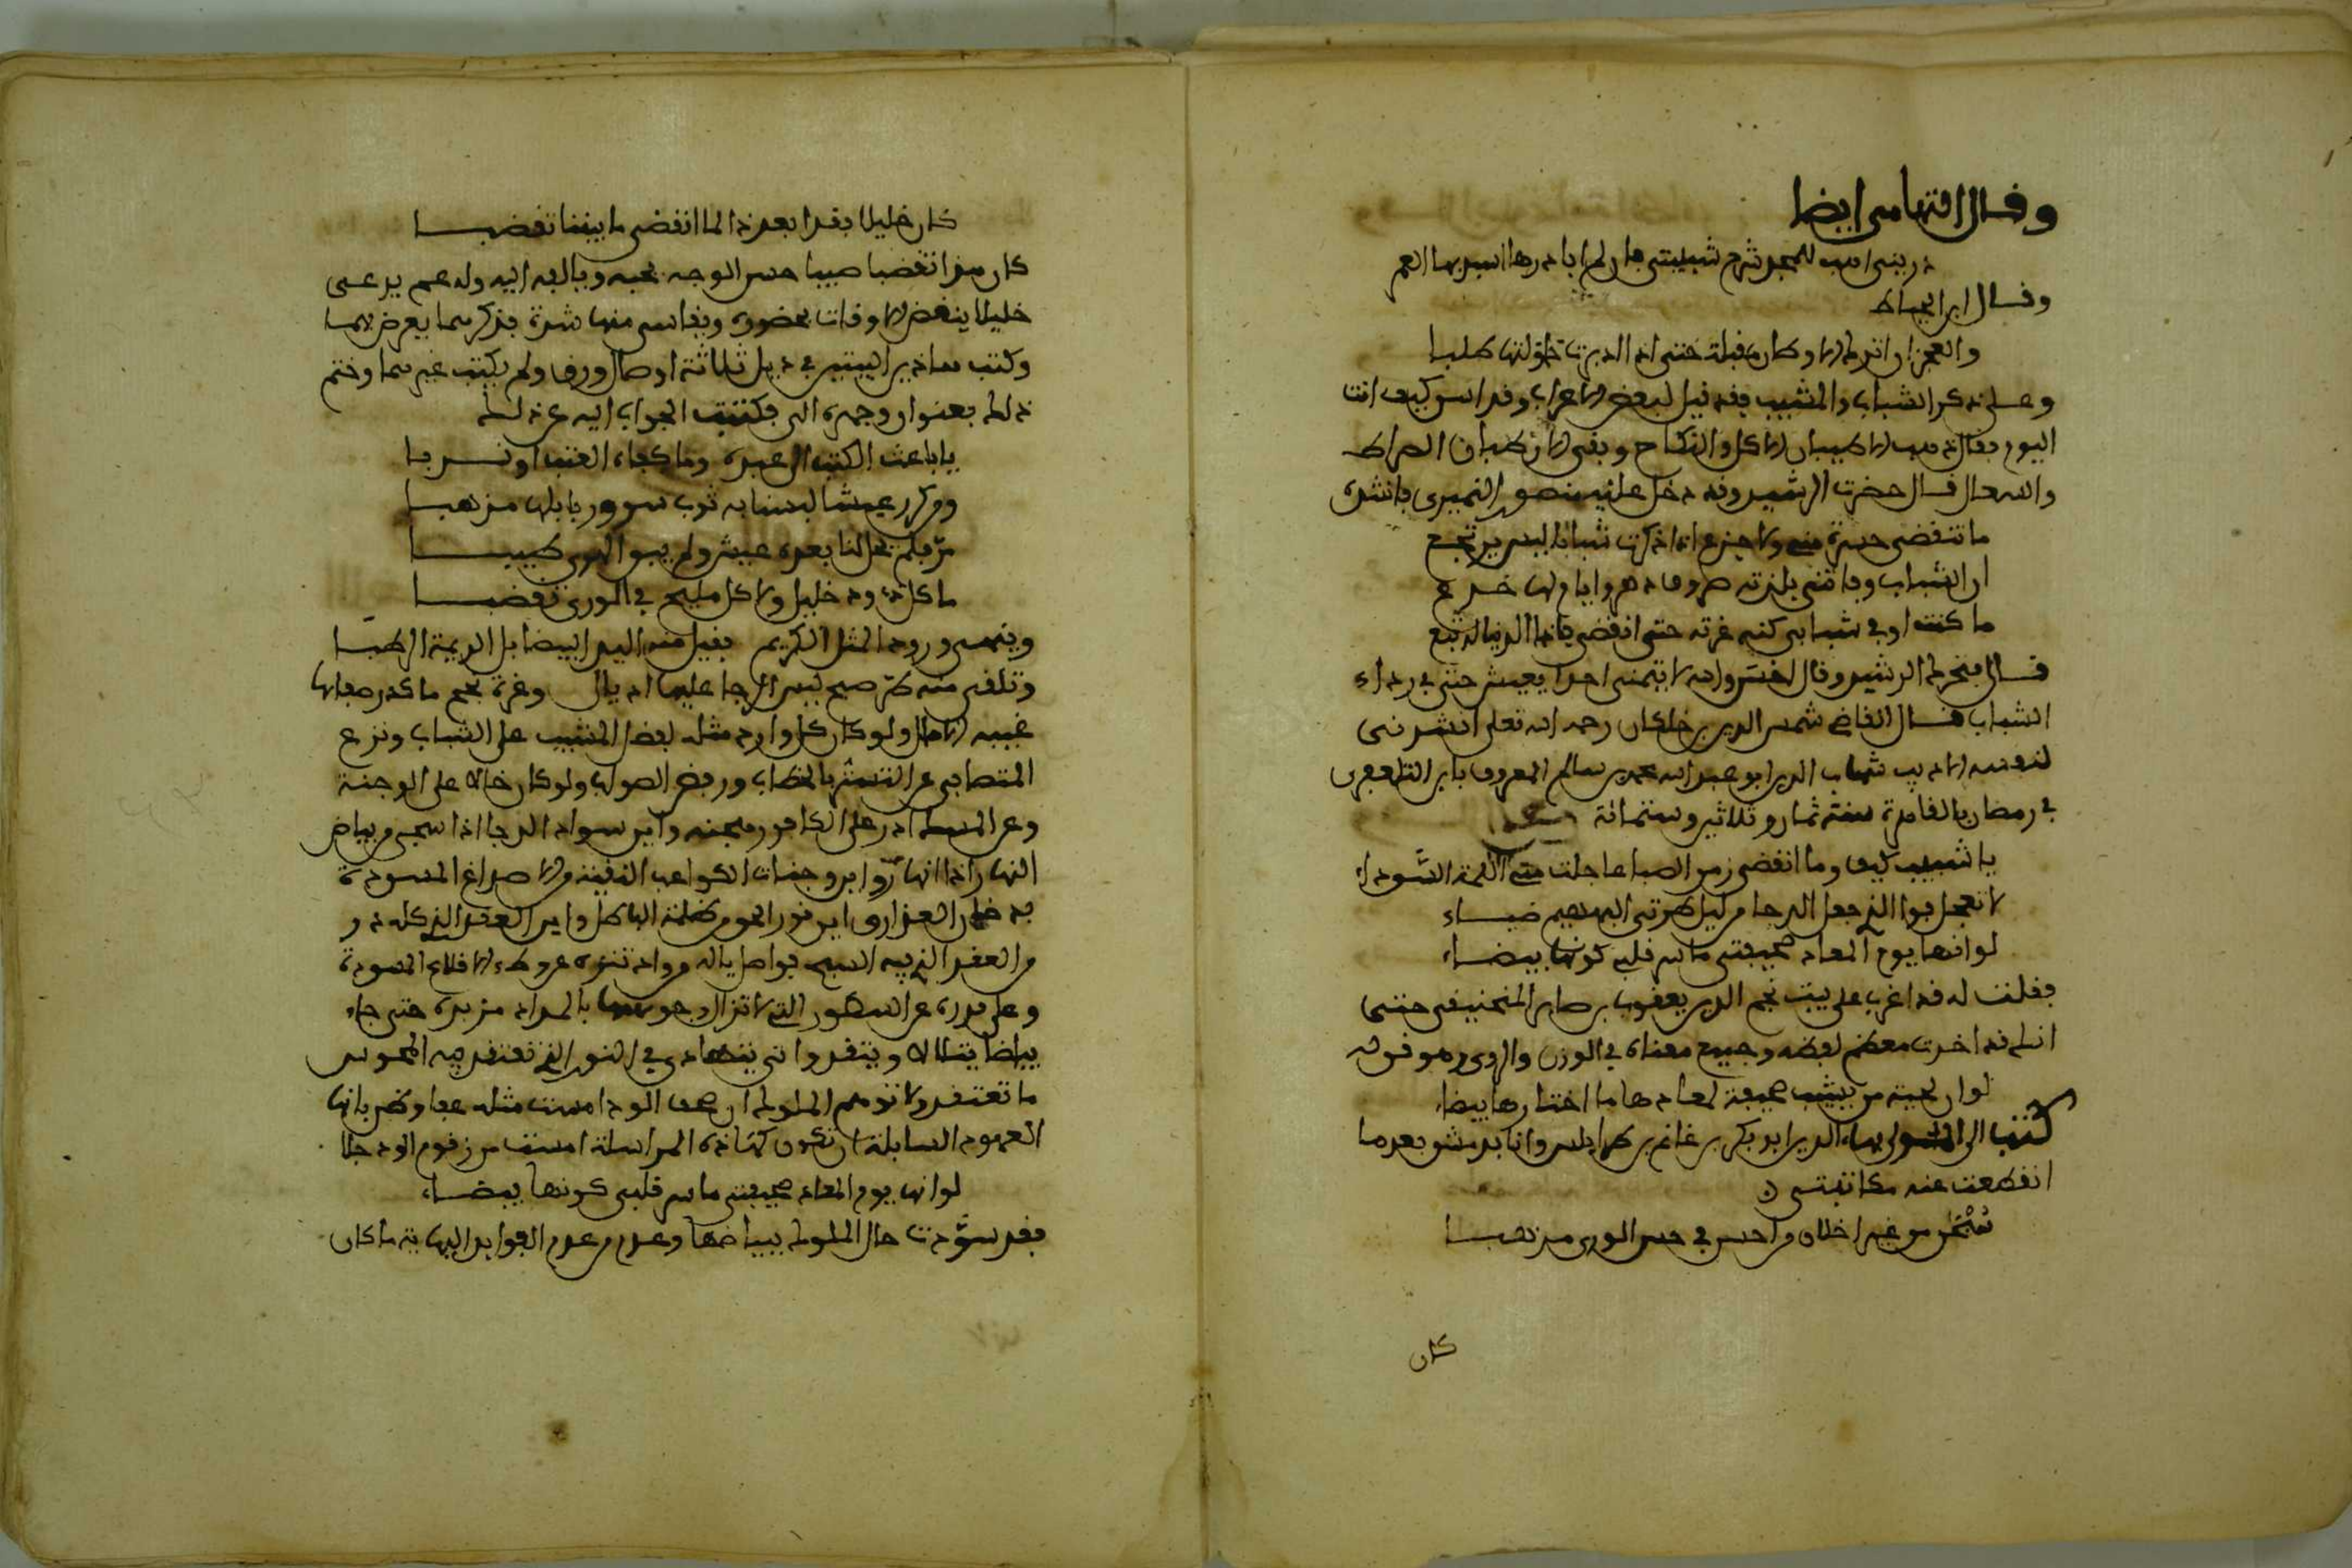 وقال التهامي ايضا
ذريني اهب للمجد شرخ شبيبتي فان لم ابادرها استبد بها العمر
وقال ابن الخياط
والعجز ان اترك الاوطار مقبلة حتى اذا ادبرت حاولتها طلبا
وعلى ذكر الشباب والمشيب فقد قيل لبعض الاعراب وقد اسن كيف انت
اليوم فقال ذهب الاطيبان الاكل والنكاح وبقي الارطبان الضراط
والسعال قال حضرت الرشيد وقد دخل عليه منصور النميري فانشده
ما تنقضي حسرة مني ولا جزع اذا ذكرت شبابا ليس يرتجع
ان الشباب وفاتتني بلذته صروف دهر وايام لها خدع
ما كنت اوفي شبابي كنه غرته حتى انقضى فاذا الدنيا له تبع
قال فتحرك الرشيد وقال احسن والله لا يتهنى احد يعيش حتى في رداء
الشباب قال القاضي شمس الدين بن خلكان رحمه الله تعلى انشدني
لنفسه الاديب شهاب الدين ابو عبد الله محمد بن سالم المعروف بابن التلعفري
في رمضان بالقاهرة سنة ثمان وثلاثين وستمائة
يا شيب كيف وما انقضى زمن الصبا عاجلت مني اللمة السوداء
لا تعجل فوالذي جعل الدجا من ليل طرتي البهيم ضياء
لو انها يوم المعاد صحيفتي ما سر قلبي كونها بيضاء
فقلت له قد اغرت على بيت نجم الدين يعقوب بن صابر المنجنيقي حتى
انك قد اخذت معظم لفظه وجميع معناه في الوزن والروي وهو قوله
لو ان لحية من يشيب صحيفة لمعاده ما اختارها بيضاء
كتب الى المولى بهاء الدين ابو بكر بن غانم بن طرابلس وانا بدمشق بعد ما
انقطعت عنه مكاتبتي
من غير اخلاق من احسن في حسن الورى مذهبا
كان
كان خليلا فغدا بعد ذا لما انقضى ما بيننا تغضبا
كان هذا تغضبا صبيا حسن الوجه يحبه ويالفه اليه وله عم يدعى
خليلا ينغص الاوقات بحضوره ويقاسي منها شدة فذكرهما يعرض بهما
وكتب هاذين البيتين في ذيل ثلاثة اوصال ورق ولم يكتب غيرهما وختم
ذلك بعنوان وجهزه الى فكتبت الجواب اليه عن ذلك
يا باعث الكتب الى عبده وما كفاه العتب او نسبا
ومكدر عيشا لبسنا به ثوب سرور بالبها مذهبا
مر فلم يحل لنا بعده عيش ولم يبق الهوى طيبا
ما كل ذي ود خليل ولا كل مليح في الورى تغضبا
وينهى ورود المثل الكريم فقبل منه اليد البيضا بل الديمة الوطفا
وتلقى منه طرة صبح ليس الدجا عليها اذيال وغرة نجم ما كدر صفاها
غيبه الاصال ولو كان كل وارد مثله لفضل المشيب على الشباب ونزع
المتصابي عن التستر بالخضاب ورفض الصواب ولو كان خالا على الوجنة
وعد المسك اذ ذر على الكافور هجنة واين سواد الدجا اذا سجى من بياض
النهار اذا انهار واين وجنات الكواعب النقية من الاصداغ المسودة
من العقد الذي فيه السبج فواصل ياله من واد تنزه عن وطء الاقلام المسودة
وعلى قدره عن السطور التي لا تزال وجوهها بالمداد مزبدة حتى جاء
بياضا يتلالا ويتقد واتى يتهادى في النور الذي تعتقد فيه المجوس
ما تعتقد ولا توهم المملوك ان صحف الود امست مثله عفا وظن بانها
العهود السابلة ان تكون كهذه المراسلة امست من رقوم الود خلا
لو انها يوم المعاد صحيفتي ما سر قلبي كونها بيضاء
فقد سودت حال المملوك ببياضها وعدم من عدم الفوايد البهاية ما كان